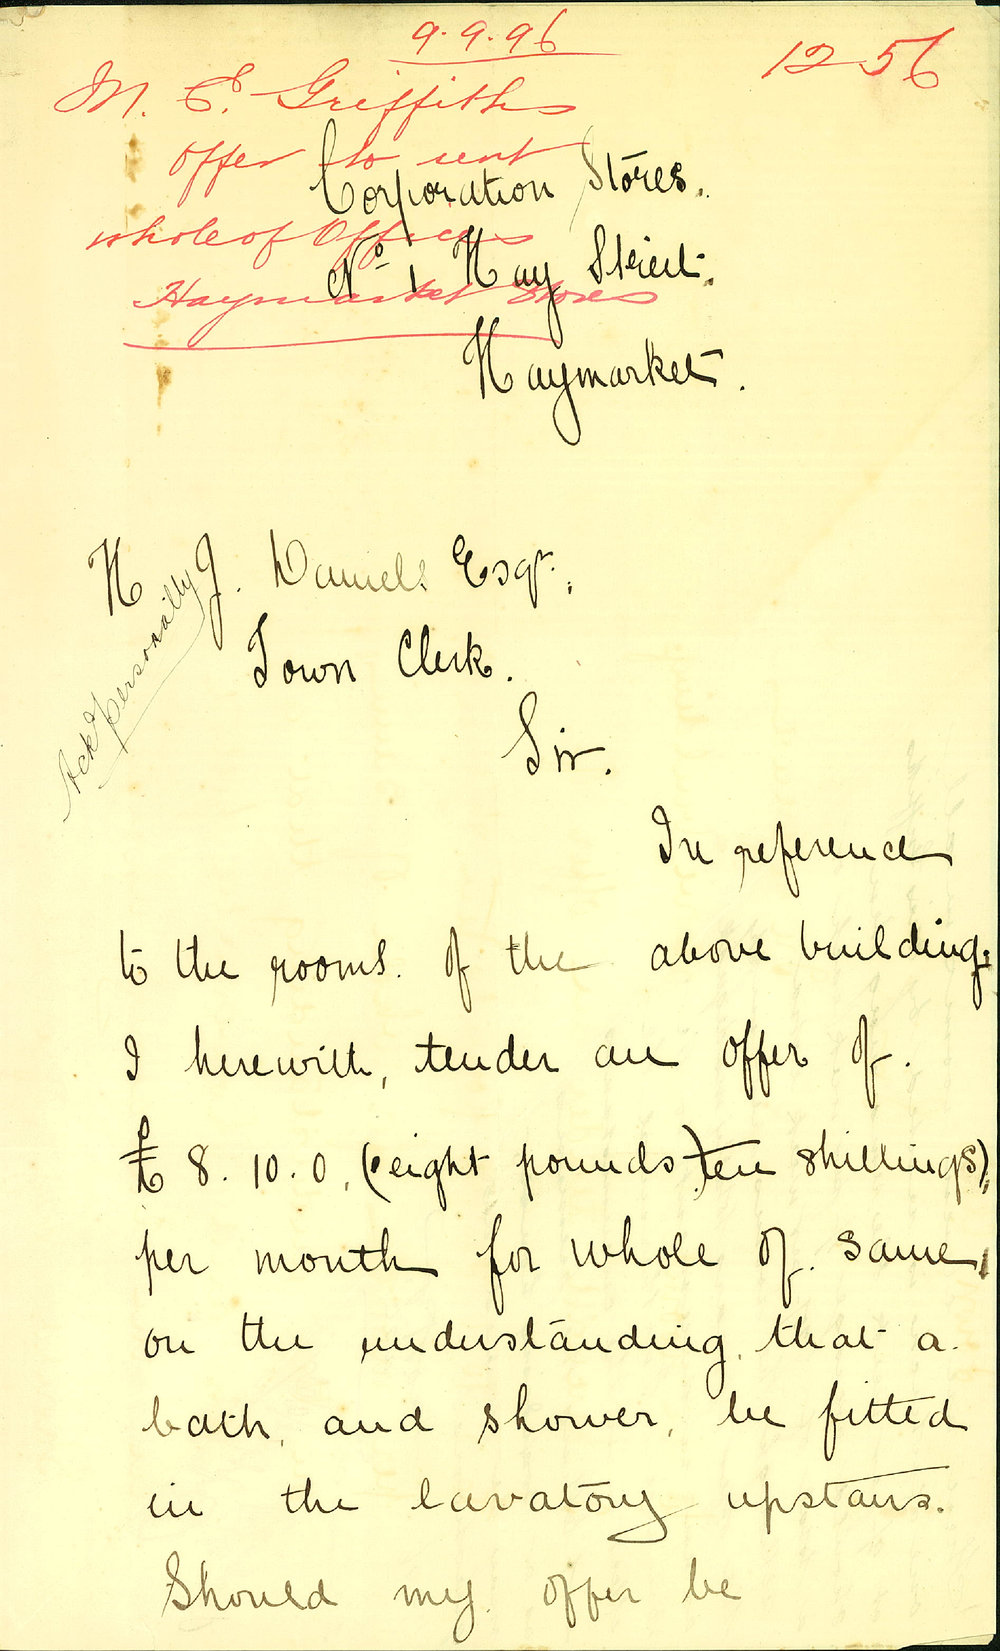 9.9.96
1256
M. E. Griffiths
offer to rent
whole of Offices
Haymarket Stores
Corporation Stores.
No 1 Hay Street.
Haymarket.
H J. Daniels Esqr.,
Town Clerk.
Ackd personally
Sir.
In reference
to the rooms. of the above building;
I herewith, tender an offer of.
£ 8. 10. 0, (eight pounds) ten shillings),
per month for whole of. same,
on the understanding, that a.
bath, and shower, be fitted
in the lavatory upstairs.
Should my offer be